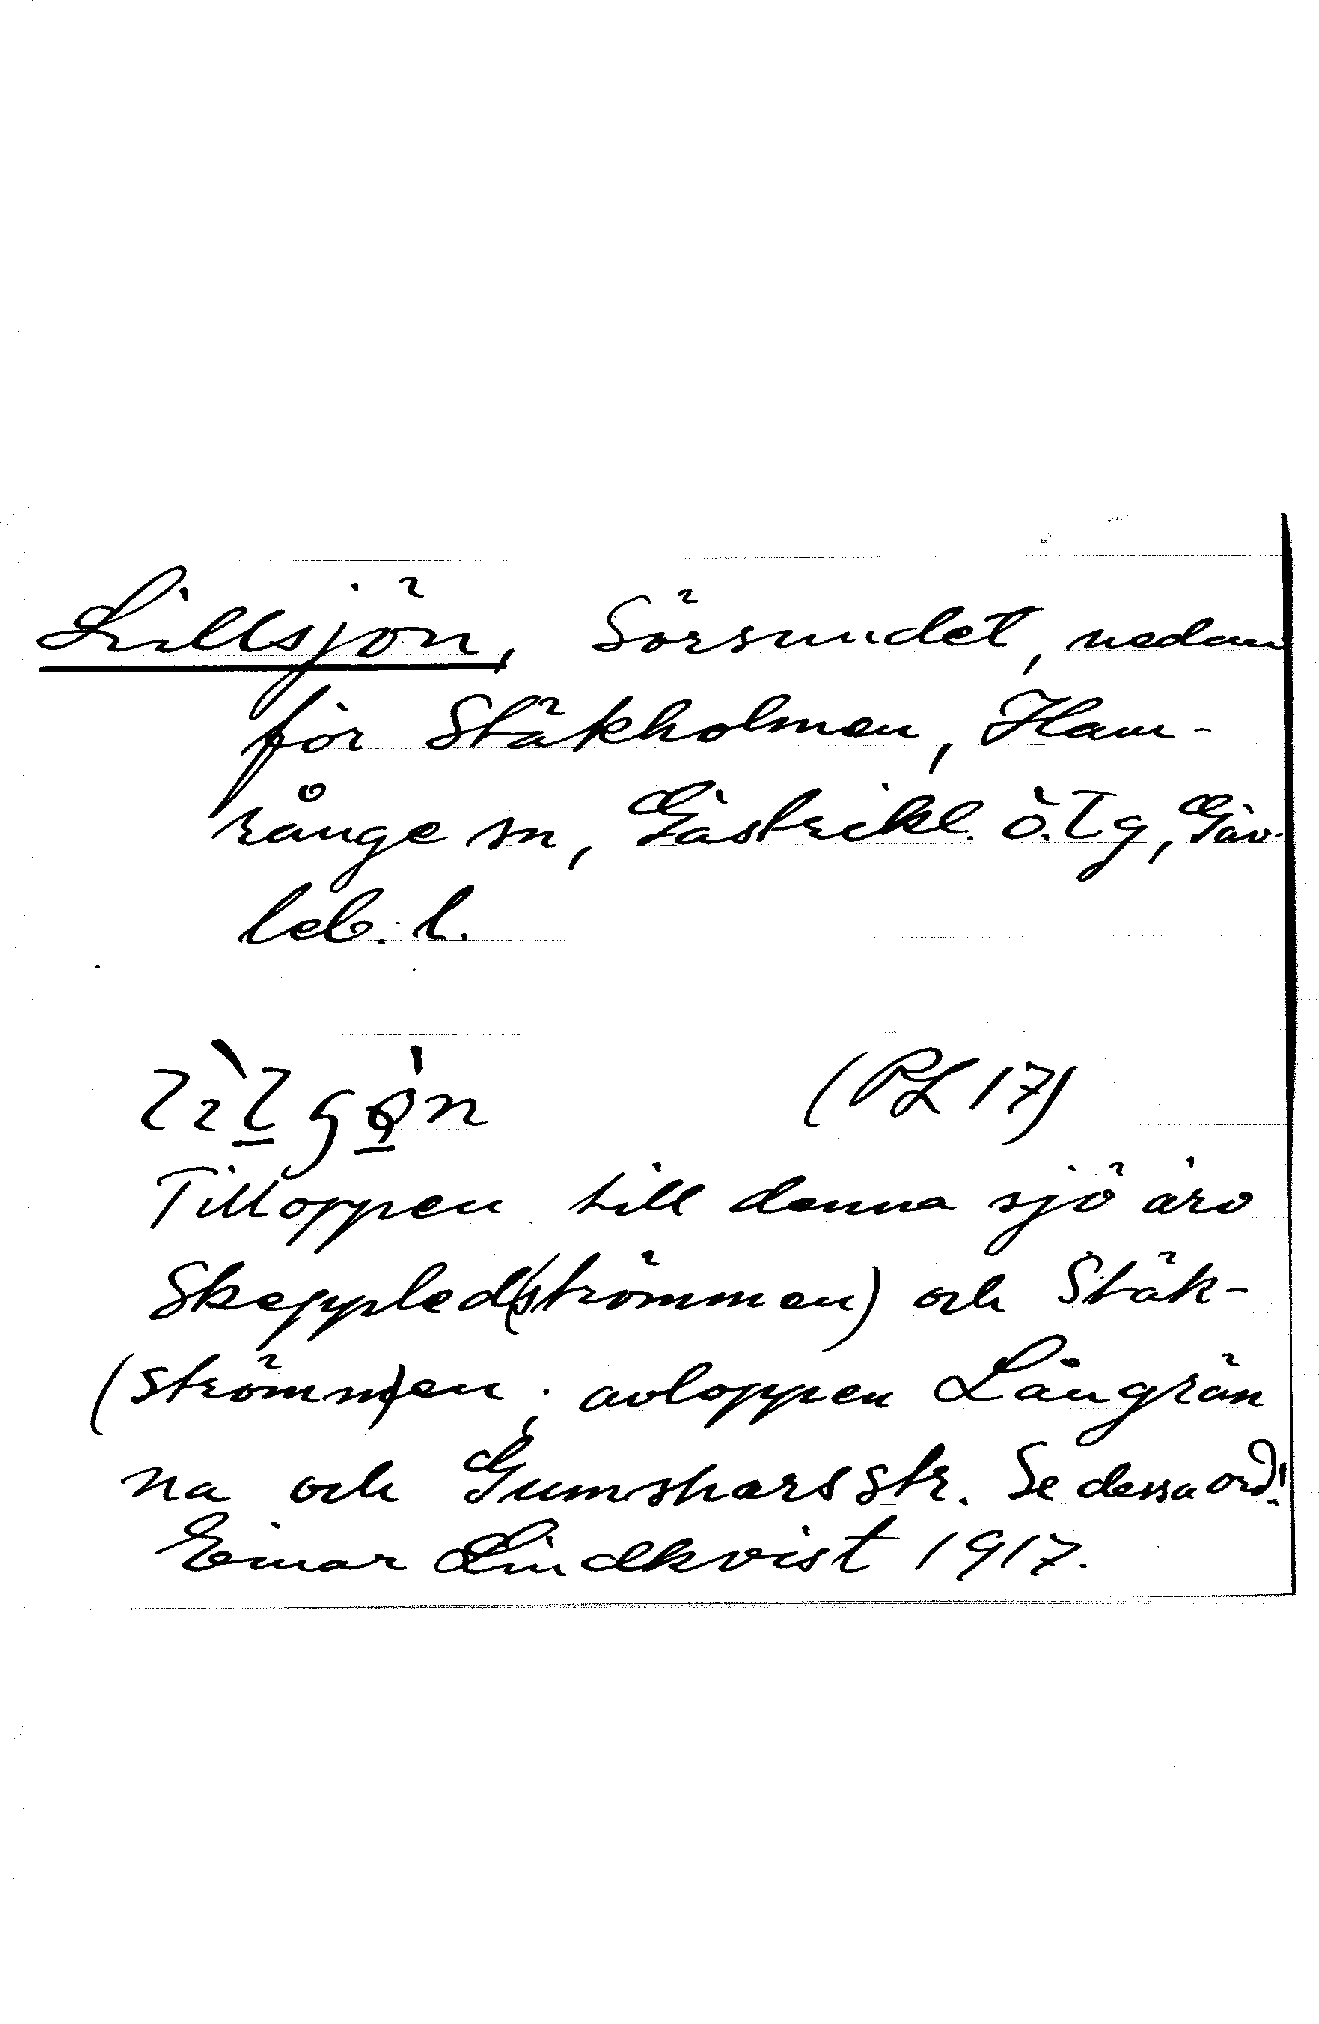 Lillsjön, Sörsundet, nedan
för Stäkholmen, Ham-
rånge sn, Gästrikl. ö. tg, Gäv-
leb. l.
(PL 17)
Tilloppen till denna sjö äro
Skeppled(strömmen) och Stäk-
(strömm)en; avloppen Långrän
na och Gumsharsstr. Se dessa ord!
Einar Lindkvist 1917.